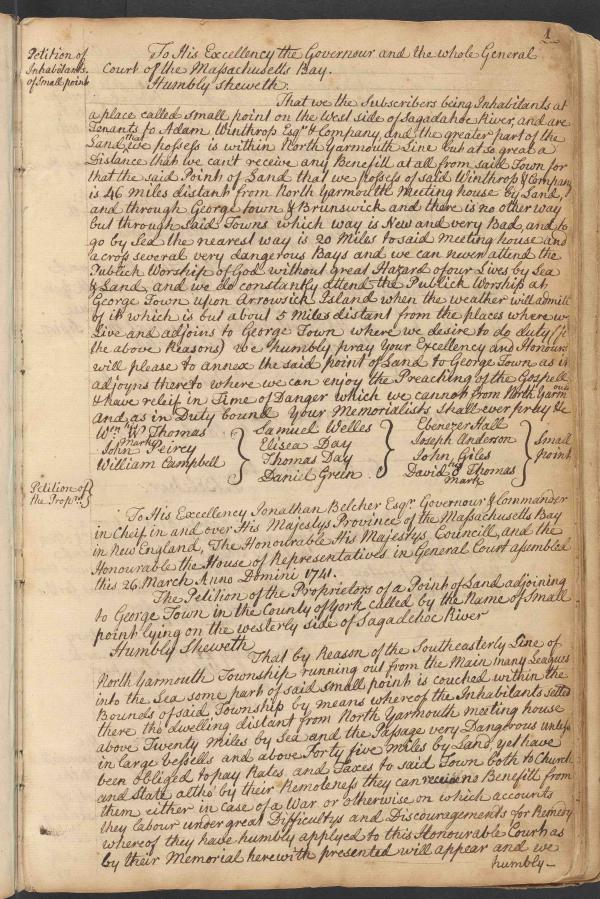 1
Petition of
Inhabitants
of Small point
To His Excellency the Governour and the whole General
Court of the Massachusetts Bay.
Humbly sheweth.
That we the Subscribers being Inhabitants at
a place called small point on the West side of Sagadahoc River, and are
Tenants to Adam Winthrop Esqr. & Company and the greater part of the
Land that we possess is within North Yarmouth Line but at so great a
Distance that we can't receive any Benefit at all from said Town for
that the said Point of Land that we possess of said Winthrop & Company
is 46 Miles distant from North Yarmouth Meeting house by Land,
and through George town & Brunswick and there is no other way
but through said Towns which way is New and very Bad, and to
go by Sea the nearest way is 20 Miles to said Meeting house and
across several very dangerous Bays and we can never attend the
Publick Worship of God without great Hazard of our Lives by Sea
& Land, and we do constantly attend the Publick Worship at
George Town upon Arrowsick Island when the weather will admitt
of it which is but about 5 Miles distant from the places where we
Live and adjoins to George Town where we desire to do duty (for
the above Reasons) We humbly pray Your Excellency and Honours
will please to annex the said point of Land to George Town as it
adjoyns thereto where we can enjoy the Preaching of the Gospell
& have releif in Time of Danger which we cannot from North Yarmouth
And as in Duty bound Your Memorialists shall ever pray &c
Wm. his W mark Thomas
John Peircy
William Campbell
Samuel Welles
Elisea Day
Thomas Day
Daniel Green
Ebenezer Hall
Joseph Anderson
John Giles
David his Thomas
mark
Small
Point
Petition of
the Proprs.
To His Excellency Jonathan Belcher Esqr. Governour & Commander
in Cheif in and over His Majestys Province of the Massachusetts Bay
in New England, The Honourable His Majestys Councill, and the
Honourable the House of Representatives in General Court assembled
this 26 March Anno Domini 1741.
The Petition of the Proprietors of a Point of Land adjoining
to George Town in the County of York called by the Name of Small
point lying on the westerly side of Sagadehoc River
Humbly Sheweth
That by Reason of the Southeasterly Line of
North Yarmouth Township running out from the Main many Leagues
into the Sea some part of said small point is couched within the
Bounds of said Township by means whereof the Inhabitants settled
there tho dwelling distant from North Yarmouth meeting house
above Twenty Miles by Sea and the Passage very Dangerous unless
in large Vessells and above Forty five Miles by Land, yet have
been obliged to pay Rates and Taxes to said Town both to Church
and State altho' by their Remoteness they can receive no Benefitt from
them either in Case of a War or otherwise on which accounts
they labour under great Difficultys and Discouragements for Remedy
whereof they have humbly applyed to this Honourable Court as
by their Memorial herewith presented will appear and we
humbly